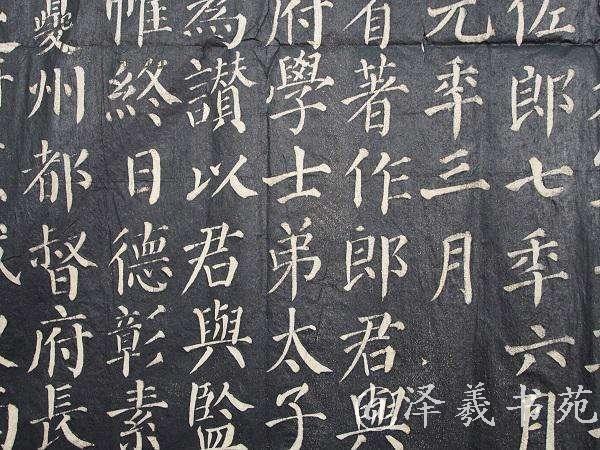 佐郎七年六月
元年三月
省著作郎君與
府學士弟太子
為讃以君與監
惟終日德彰素
夔州都督府長
泽羲书苑